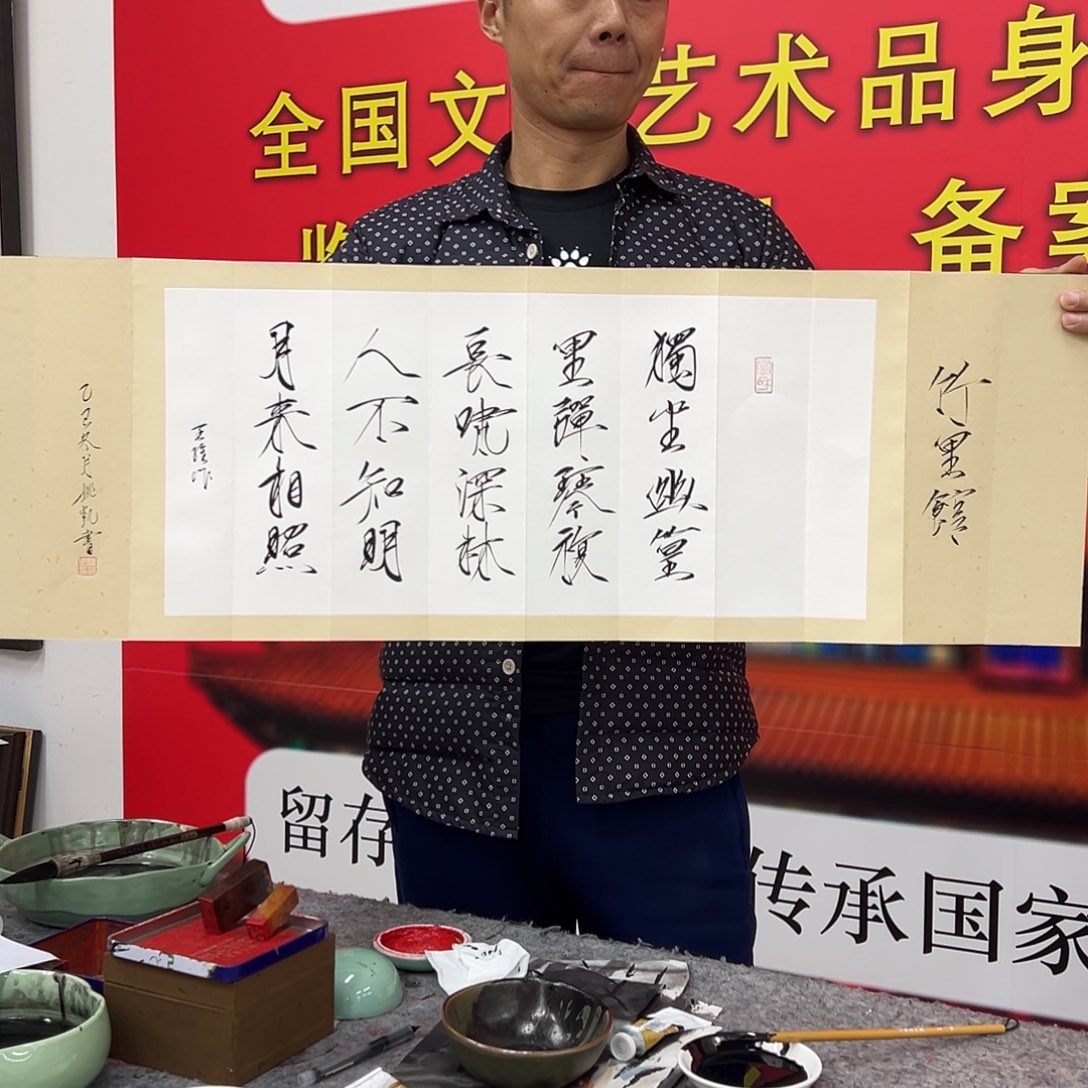 全国文 艺术品身
备案
竹里館
獨坐幽篁
里彈琴複
長嘯深林
人不知明
月来相照
王維作
乙巳冬月姚凯書
留存 传承国家